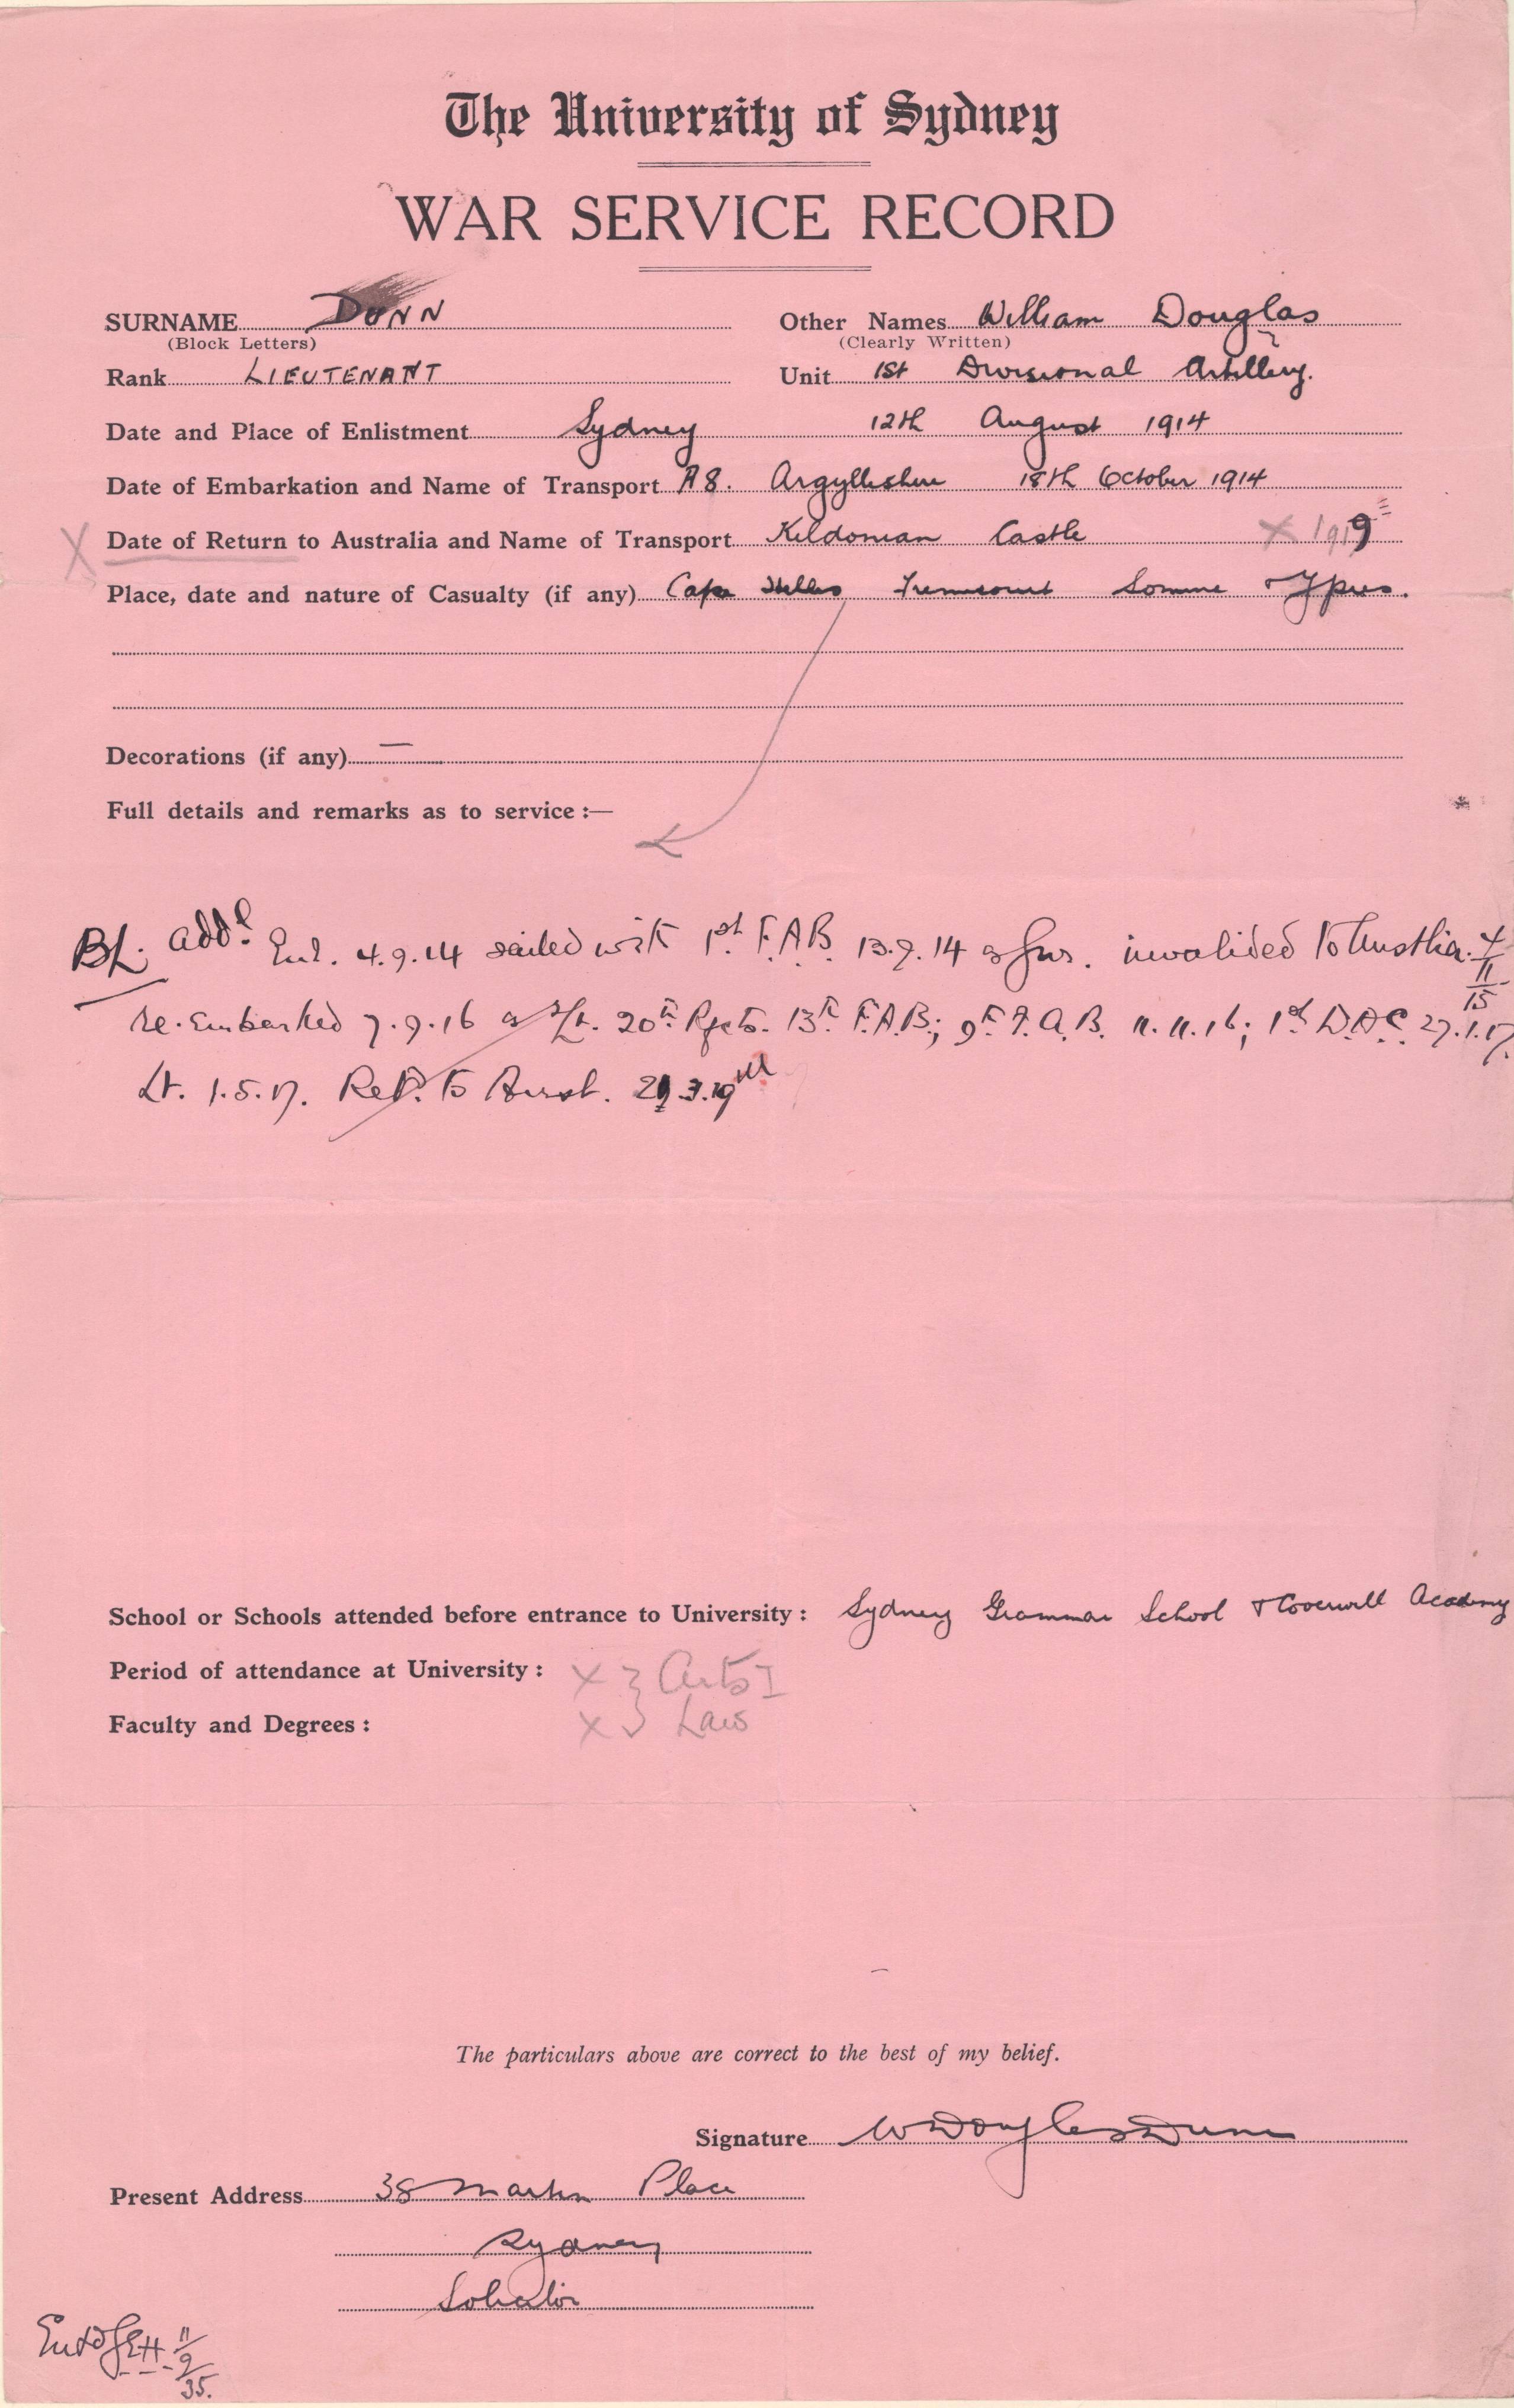 The University of Sydney
WAR SERVICE RECORD
SURNAME DUNN Other Names William Douglas
(Block Letters) (Clearly Written)
Rank LIEUTENANT Unit 1st Divisional Artillery.
Date and Place of Enlistment Sydney 12th August 1914
Date of Embarkation and Name of Transport A8. Argyllshire 18th October 1914
X Date of Return to Australia and Name of Transport Kildonian Castle X 1919
Place, date and nature of Casualty (if any) Cape Helles Somme & Ypres.
Decorations (if any) —
Full details and remarks as to service :—
add. Enl. 4.9.14 sailed with 1st F.A.B. 13.9.14 as Gnr. invalided to Austlia. 4/11/15
re-embarked 7.9.16 as 2/Lt. 20th Rfcts. 13th F.A.B.; 9th F.A.B. 11.11.16; 1st D.A.C. 27.1.17.
Lt. 1.5.17. Ret. to Aust. 3.19
School or Schools attended before entrance to University : Sydney Grammar School & Cooerwull Academy
Period of attendance at University : X } Arts I
Faculty and Degrees : X } Law
The particulars above are correct to the best of my belief.
Signature W Douglas Dunn
Present Address 38 Martin Place
Sydney
Solicitor
11/9/35.